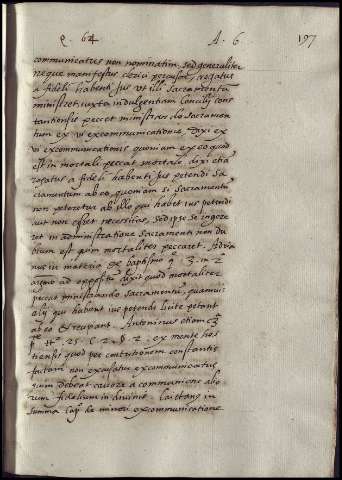 q. 64 A. 6 197
communicatus non nominatim, sed generaliter
neque manifestus clerici percussor, rogatus
a fideli habenti jus ut illi Sacramentum
ministret, juxta indulgentiam Concilij cons
tantiensis peccet ministrando Sacramen
tum ex vi excommunicationis. dixi ex
vi excommunicationis quoniam ex eo quod
est in mortali peccat mortale. dixi etiã
rogatus a fideli habenti jus petendi sa
cramentum ab eo, quoniam si sacramentũ
non peteretur ab illo qui habet ius petendi
aut non esset necessitas, sed ipse se ingere
ret in administratione Sacramenti non du
bium est quin mortaliter peccaret. Adria
nus in materia de baptismo q. 3. in 2.
argum̃ ad oppositũ dixit quod mortaliter
peccat ministrando sacramentũ, quamvis
alij qui habent ius petendi licite petant
ab eo & recipiant. Antoninus etiam 3.
p. tit. 25. C. 2. §. 2. ex mente hos
tiensis quod per constitutionem constantie
factam non excusatur excommunicatus
quin debeat cavere a communione alio
rum fidelium in divinis. Caietanus in
summa cap. de minori excommunicatione